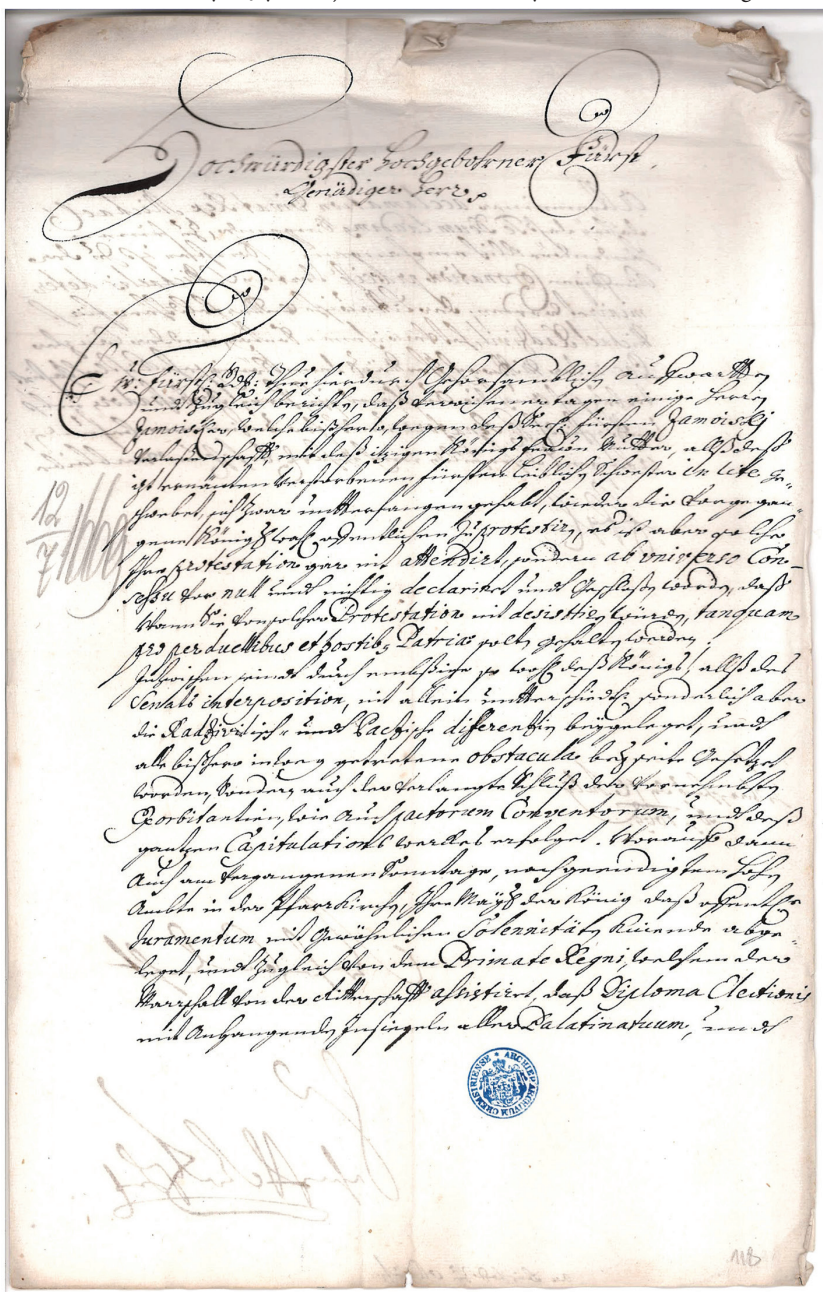 Hochwürdigster Hochgebohrner Fürst,
Genädiger Herr,
Ew: Fürstl: Gd: thue hierdurch Gehorsamblich auffwartten
und zugleich berichten, daß verwichener tagen einige Herren
Zamoiscÿ, welche bißhero, wegen deß Fürsten Zamoiskÿ
Verlassenschafft, mit deß itzigen Königs Frawen Mutter, allß deß
verstorbenen Fürsten Leiblichen Schwester in lite ge-
schwebet, sich zwar unterfangen gehabt, wieder die vorgegan-
gene Königs wahl offentlichen zu protestiren, es ist aber solche
Ihre protestation gar nit attendirt, sondern ab universo Con-
sessu vor null und nichtig declariret und Geschlossen worden, daß
Wann Sie von solcher Protestation nit desistiren würden, tanquam
pro perduellibus et hostibus Patriæ solten gehalten werden,
Inzwischen seindt durch embßige so wohl deß Königs, allß des
Senats interposition, nit allein unterschiedliche sonderlich aber
die Radzivilisch- und Pacische differentien beÿgeleget, undt
alle bißhero in weg getrettene obstacula beÿseite Gesetzet
worden, Sondern auch der verlangte Schluß der Vornehmbsten
Exorbitantien, wie auch pactorum Conventorum, undt deß
gantzen Capitulations werckes erfolget. Worauff dann
Auch am vergangenen Sonntage, nach geendigtem Hohen
Ambte in der Pfarrkirchen, Ihre Maÿtt der König daß offentliche
Juramentum mit Gewöhnlichen Solennitäten Kniende abge-
leget, undt zugleich von dem Primate Regni, welchem der
Marschall von der Ritterschafft assistiret, daß Diploma Electionis
mit Anhangenden Insiegeln aller Palatinatuum, undt
12
7 1669
ARCHIVUM ARCHIEP. CREMSIRIENSE
118